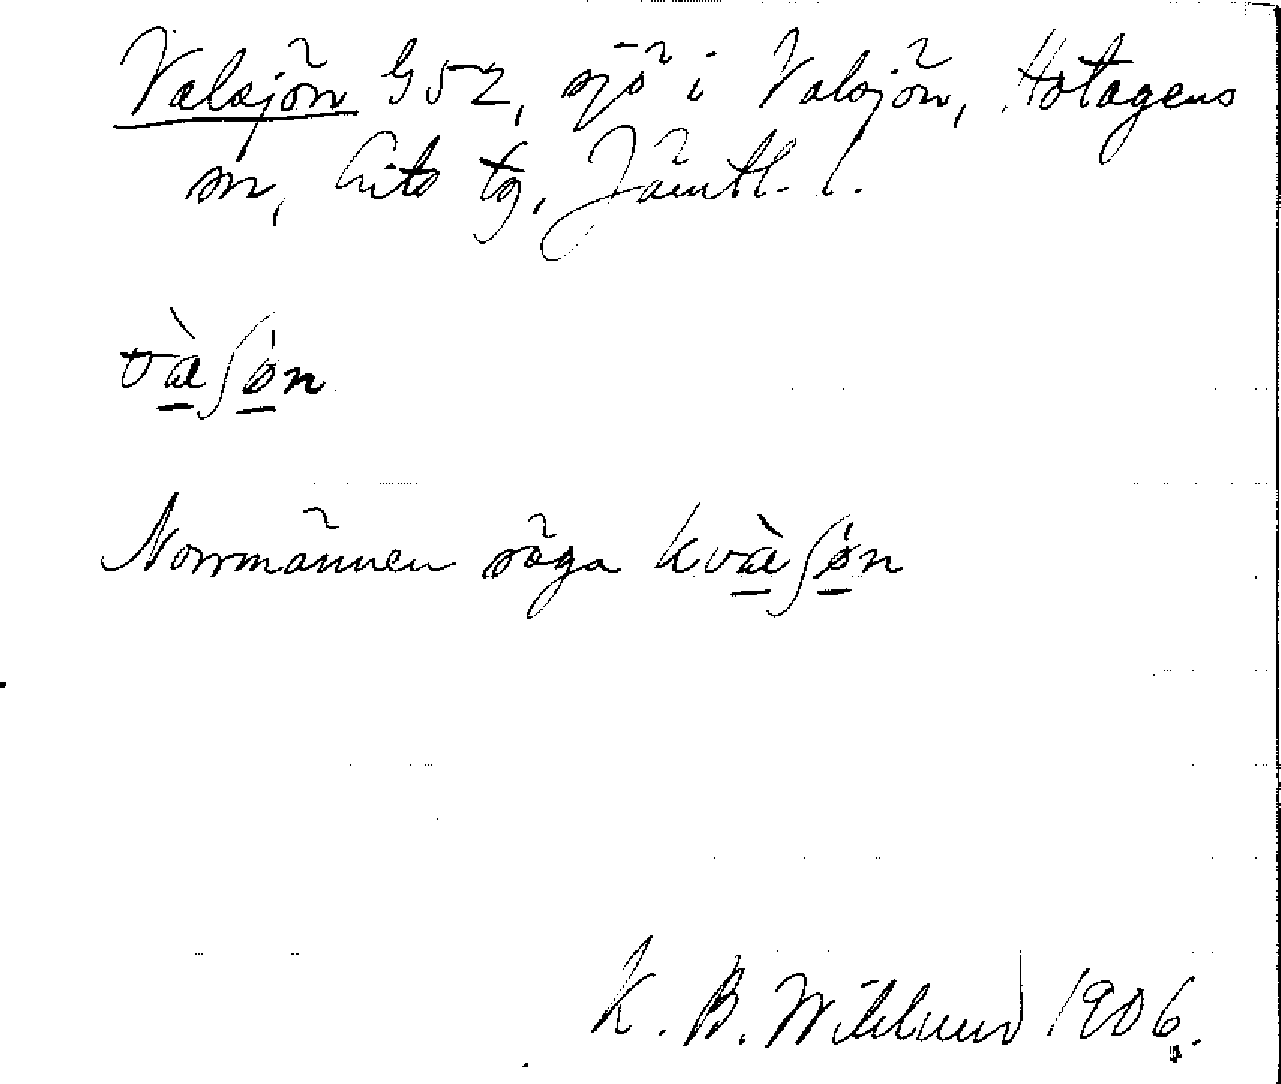 Valsjön G52, sjö i Valsjön, Hotagens
sn, Lits tg, Jämtl. l.
væ̀ʃøn
Norrmännen säga kvæ̀ʃøn
K. B. Wiklund 1906.